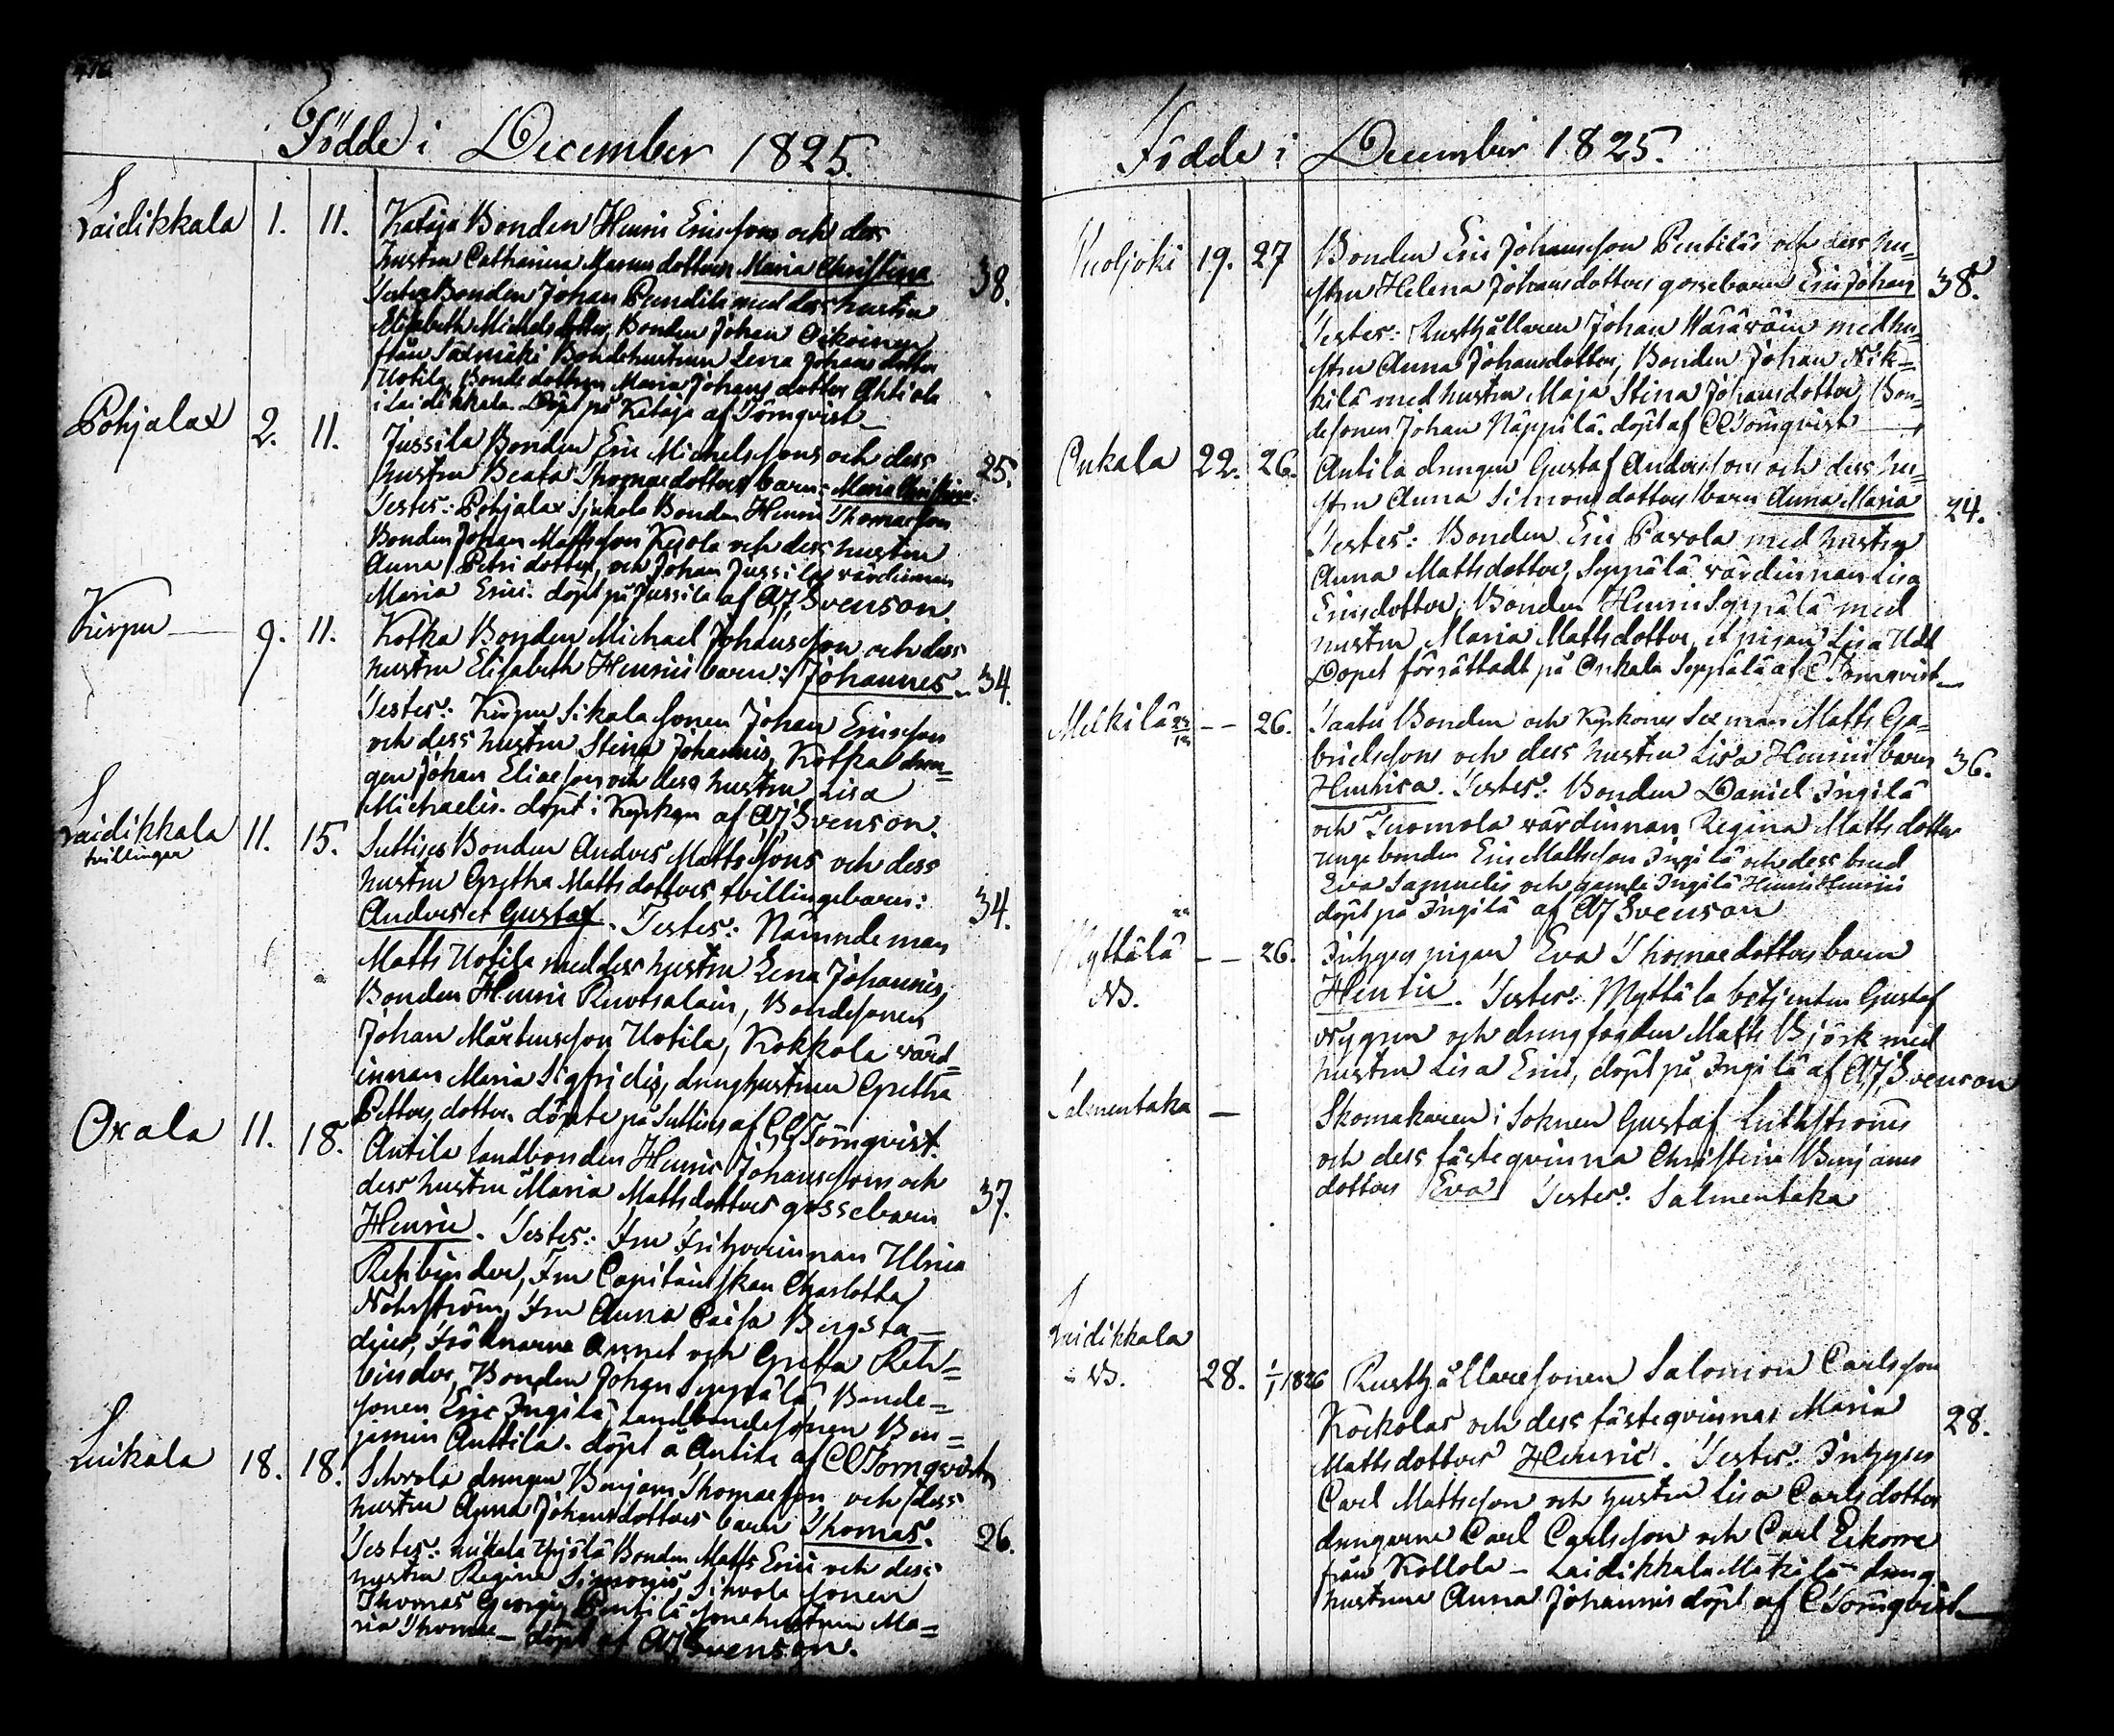 Födde i December 1825.
Laidikkala 1. 11. Kataja Bonden Henric Ericssons och dess
hustru Catharina Marcusdotters Maria Christina 38.
Testes Bonden Johan Penttilä med dess hustru
Elisabeth Michelsdotter, Bonden Johan Oikoinen
från Säxmäki Bondehustrun Lena Johansdotter
Uotila, Bondedottren Maria Johansdotter Ahtiala
i Laidikkala. Döpt på Kataja af Törnqvist
Pohjalax 2. 11. Jussila Bonden Eric Michelssons och dess
hustru Beata Thomaedotters barn: Maria Christina. 25.
Testes: Pohjalax Sjukola Bonden Henric Thomasson
Bonden Johan Mattsson Kuola och dess hustru
Anna Petri dotter, och Johan Jussilas värdinnan
Maria Erici. döpt på Jussila af AJ Svenson.
Kirpu 9. 11. Kotka Bonden Michael Johansson och dess
hustru Elisabeth Henrici barn: Johannes. 34
Testes: Kirpu Sikala sonen Johan Ericsson
och dess hustru Stina Johannis, Kotka drän=
gen Johan Eliaeson och dess hustru Lisa
Michaelis. döpt i Kyrkan af AJ Svenson.
Laidikkala 11. 15. Suttises Bonden Anders Mattssons och dess
tvillingar
hustru Gretha Mattsdotters tvillingebarn: 34.
Anders et Gustaf. Testes: Nämndeman
Matts Uotila med dess hustru Lena Johannis,
Bonden Henric Ruotsalain, Bondesonen
Johan Mårtensson Uotila, Kokkola värd=
innan Maria Sigfridis, dränghustrun Gretha
Petters dotter. döpte på Suttises af CG Törnqvist.
Oxala 11. 18. Antila Landbonden Henric Johanssons och
dess hustru Maria Mattsdotters gossebarn 37.
Henric. Testes: Fru Friherrinnan Ulrica
Rehbinder, Fru Capitainskan Charlotta
Nohrström, Fru Anna Caisa Bergsta_
dius, Fröknarna Annet och Gretta Reh=
binder, Bonden Johan Seppälä Bonde=
sonen Eric Ingilä, Landbondesonen Ben=
jamin Anttila. döpt å Antila af CG Törnqvist
Luikala 18. 18. Sihvola drängen Benjam Thomaeson och dess
hustru Anna Johansdotters barn Thomas. 26.
Testes: Luikala Yrjölä Bonden Matts Erici och dess
hustru Regina Simonis, Sihvola sonen
Thomas Georgii, Penttilä sonehustrun Ma=
ria Thomae _ döpt af AJ Svenson.
Födde i December 1825.
Kuoljoki 19. 27 Bonden Eric Johansson Penttiläs och dess hu=
stru Helena Johansdotters gossebarn Eric Johan 38.
Testes: Rusthållaren Johan Wäräväin med hu=
stru Anna Johansdotter, Bonden Johan Nik=
kilä med hustru Maja Stina Johansdotter, Bon=
desonen Johan Näppilä. döpt af CG Törnqvist
Onkala 22. 26. Antila drengen Gustaf Anderssons och dess hu=
stru Anna Simonsdotters barn Anna Maria 24.
Testes: Bonden Eric Pavola med hustru
Anna Mattsdotter, Seppälä värdinnan Lisa
Ericsdotter, Bonden Henric Seppälä med
hustru Maria Mattsdotter, et pigan Lisa Udd
Dopet förrättadt på Onkala Seppälä af C Törnqvist
Melkilä 22/12 -- 26. Taatu Bonden och Kyrkones Sexman Matts Ga=
brielssons och dess hustru Lisa Henrici barn 36.
Henrica. Testes: Bonden Daniel Ingilä
och Tuomola värdinnan Regina Mattsdotter
unge bonden Eric Mattsson Ingilä och dess brud
Eva Samuelis och gamle Ingilä Henric Henrici
döpt på Ingilä af AJ Svenson
Myttälä -- 26. Inhyses pigan Eva Thomaedotters barn
NB.
Henric. Testes: Myttälä betjenten Gustaf
Nygren och drengfogden Matts Björk med
hustru Lisa Erici, döpt på Ingilä af AJ Svenson
Salmentaka — Skomakaren i Soknen Gustaf Luthströms
och dess fästeqvinna Christina Benjams
dotters Eva Testes: Salmentaka
Laidikkala
NB. 28. 1/1 1826 Rusthållaresonen Salomon Carlsson
Kockolas och dess fästeqvinnas Maria 28.
Mattsdotters Henric. Testes: Inhyses
Carl Mattsson och hustru Lisa Carlsdotter
drengarne Carl Carlsson och Carl Eekorre
från Kollola — Laidikkala Mäkilä dreng
hustrun Anna Johannis döpt af C Törnqvist